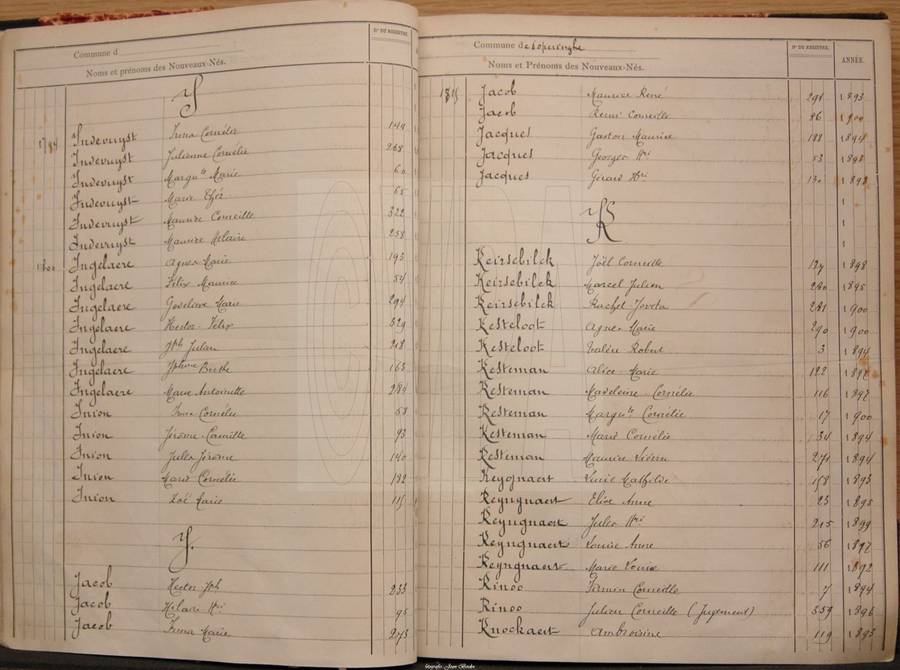 Commune d
Noms et prénoms des Nouveaux-Nés.
N° DU REGISTRE.
I
Indevuyst Irma Cornélie 149
1784 Indevuyst Julienne Cornélie 268
Indevuyst Margu^te Marie 60
Indevuyst Marie 65
Indevuyst Maurice Corneille 322
Indevuyst Maurice Hilaire 258
Ingelaere Agnes Marie 195
Ingelaere Félix Maurice 54
Ingelaere Godelieve Marie 294
Ingelaere Hector Félix 329
Ingelaere Jph Julien 218
Ingelaere Berthe 163
Ingelaere Marie Antoinette 284
Inion Irma Cornélie 58
Inion Jérôme Camille 93
Inion Jules Jérome 140
Inion Marie Cornélie 192
Inion Zoé Marie 115
J.
Jacob Hector Jph 233
Jacob Hilaire Hri 95
Jacob Irma Marie 273
Commune de
Noms et Prénoms des Nouveaux-Nés.
N° DU REGISTRE.
ANNÉE.
Jacob Maurice René 298 1893
Jacob Remi Corneille 86 1900
Jacques Gaston Maurice 188 1894
Jacques Georges Hri 53 1898
Jacques Gerard Hri 130 1898
K
Keirsebilck Joël Corneille 127 1898
Keirsebilck Marcel Julien 280 1895
Keirsebilck Rachel 281 1900
Kesteloot Agnes Marie 290 1900
Kesteloot Valère Robert 3 1894
Kesteman Alice Marie 122 1892
Kesteman Madeleine Cornélie 116 1897
Kesteman Margu^te Cornélie 17 1900
Kesteman Marie Cornélie 34 1894
Kesteman Maurice 271 1894
Keygnaert Lucie Mathilde 158 1893
Keyngnaert Elise Anne 23 1895
Keyngnaert Jules Hri 215 1899
Keyngnaert Louise Anne 56 1897
Keyngnaert Marie Louise 111 1892
Kinoo Firmin Corneille 7 1894
Kinoo Julien Corneille (Jugement) 359 1896
Knockaert Ambroisine 119 1893